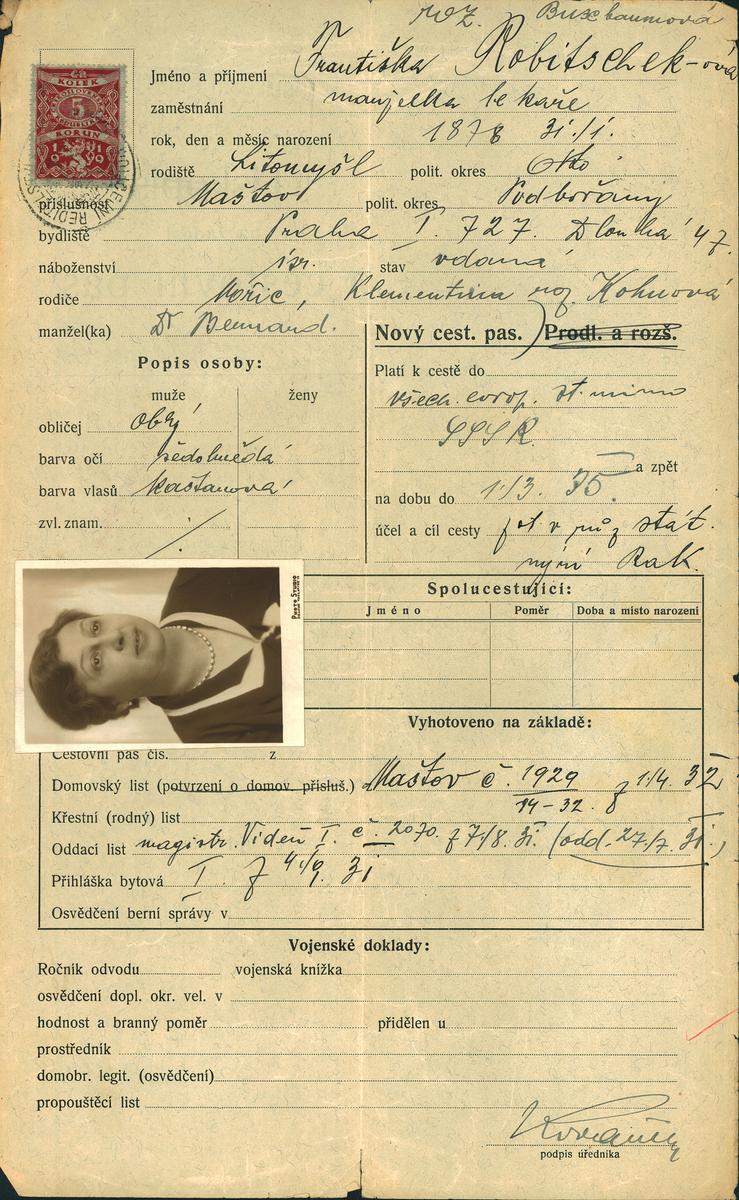 roz. Buxbaumová
Jméno a příjmení Františka Robitschek-ová
zaměstnání manželka lékaře
rok, den a měsíc narození 1878 31./1.
rodiště Litomyšl polit. okres dtto
příslušnost Maštov polit. okres Podbořany
bydliště Praha I. 727. Dlouhá 47.
náboženství isr. stav vdaná
rodiče Mořic, Klementina roz. Kohnová
manžel(ka) Dr Bernard.
KOLEK
5
KORUN
1919
Nový cest. pas. Prodl. a rozš.
Popis osoby:
muže ženy
obličej obl.
barva očí šedohnědá
barva vlasů kaštanová
zvl. znam.
Platí k cestě do
všech. evrop. st. mimo
SSSR.
a zpět
na dobu do 1/3. 35.
účel a cíl cesty stát.
nyní Rak.
PHOTO STUDIO
Spolucestující:
Jméno Poměr Doba a místo narození
Vyhotoveno na základě:
Cestovní pas čís. z
Domovský list (potvrzení o domov. přísluš.) Maštov č. 1929 z 1./4. 32
14-32.
Křestní (rodný) list
Oddací list magistr. Vídeň I. č. 2070. z 7/8. 31. (odd. 27./7. 31.)
Přihláška bytová I. z 4/9. 31
Osvědčení berní správy v
Vojenské doklady:
Ročník odvodu vojenská knížka
osvědčení dopl. okr. vel. v
hodnost a branný poměr přidělen u
prostředník
domobr. legit. (osvědčení)
propouštěcí list
podpis úředníka